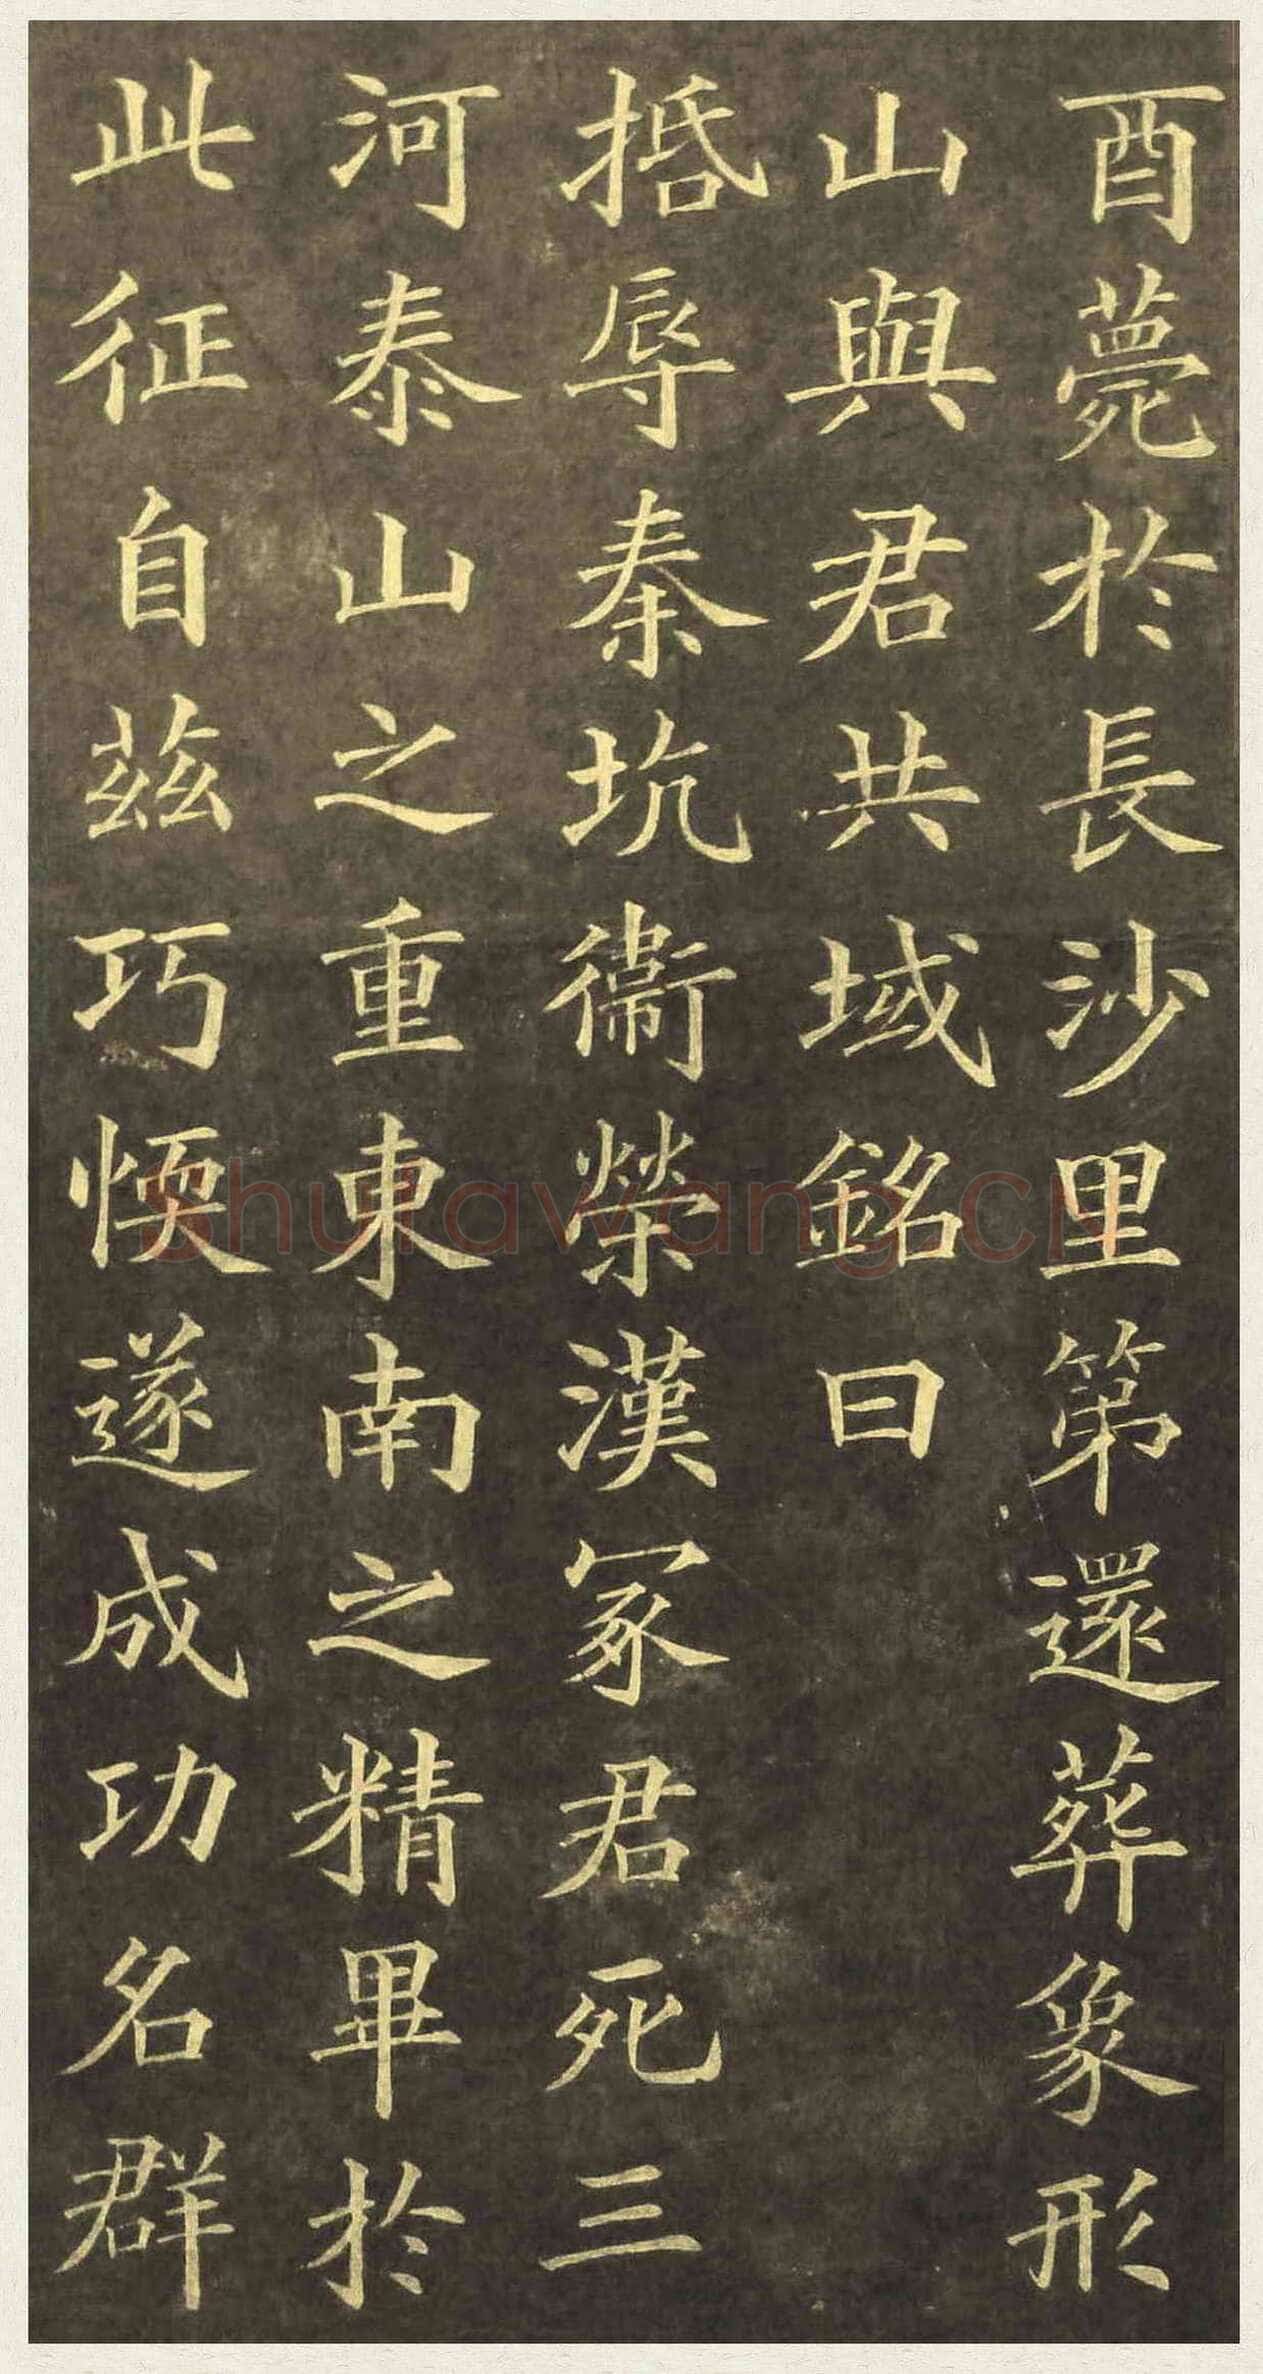 酉薨於長沙里第還葬象形
山與君共域銘曰
抵辱秦坑衛榮漢冢君死三
河泰山之重東南之精畢於
此征自茲巧愞遂成功名群
shufawang.cn